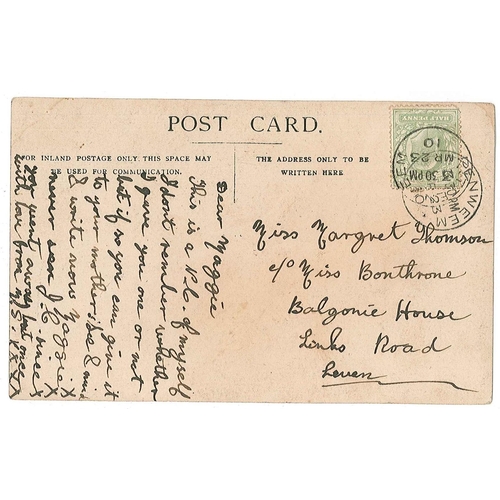 POST CARD.
FOR INLAND POSTAGE ONLY THIS SPACE MAY
BE USED FOR COMMUNICATION.
THE ADDRESS ONLY TO BE
WRITTEN HERE
HALF PENNY
PENWEEM
3.30PM
MR 23
10
Dear Maggie
This is a P.C. of myself
I dont remember whether
I gave you one or not
but if so you can give it
to your mother, be & mind
& write now Maggie X
never seen J. C. since X
you went away but once X
with love from M. S. X X X
Miss Margret Thomson
c/o Miss Bonthrone
Balgonie House
Links Road
Leven